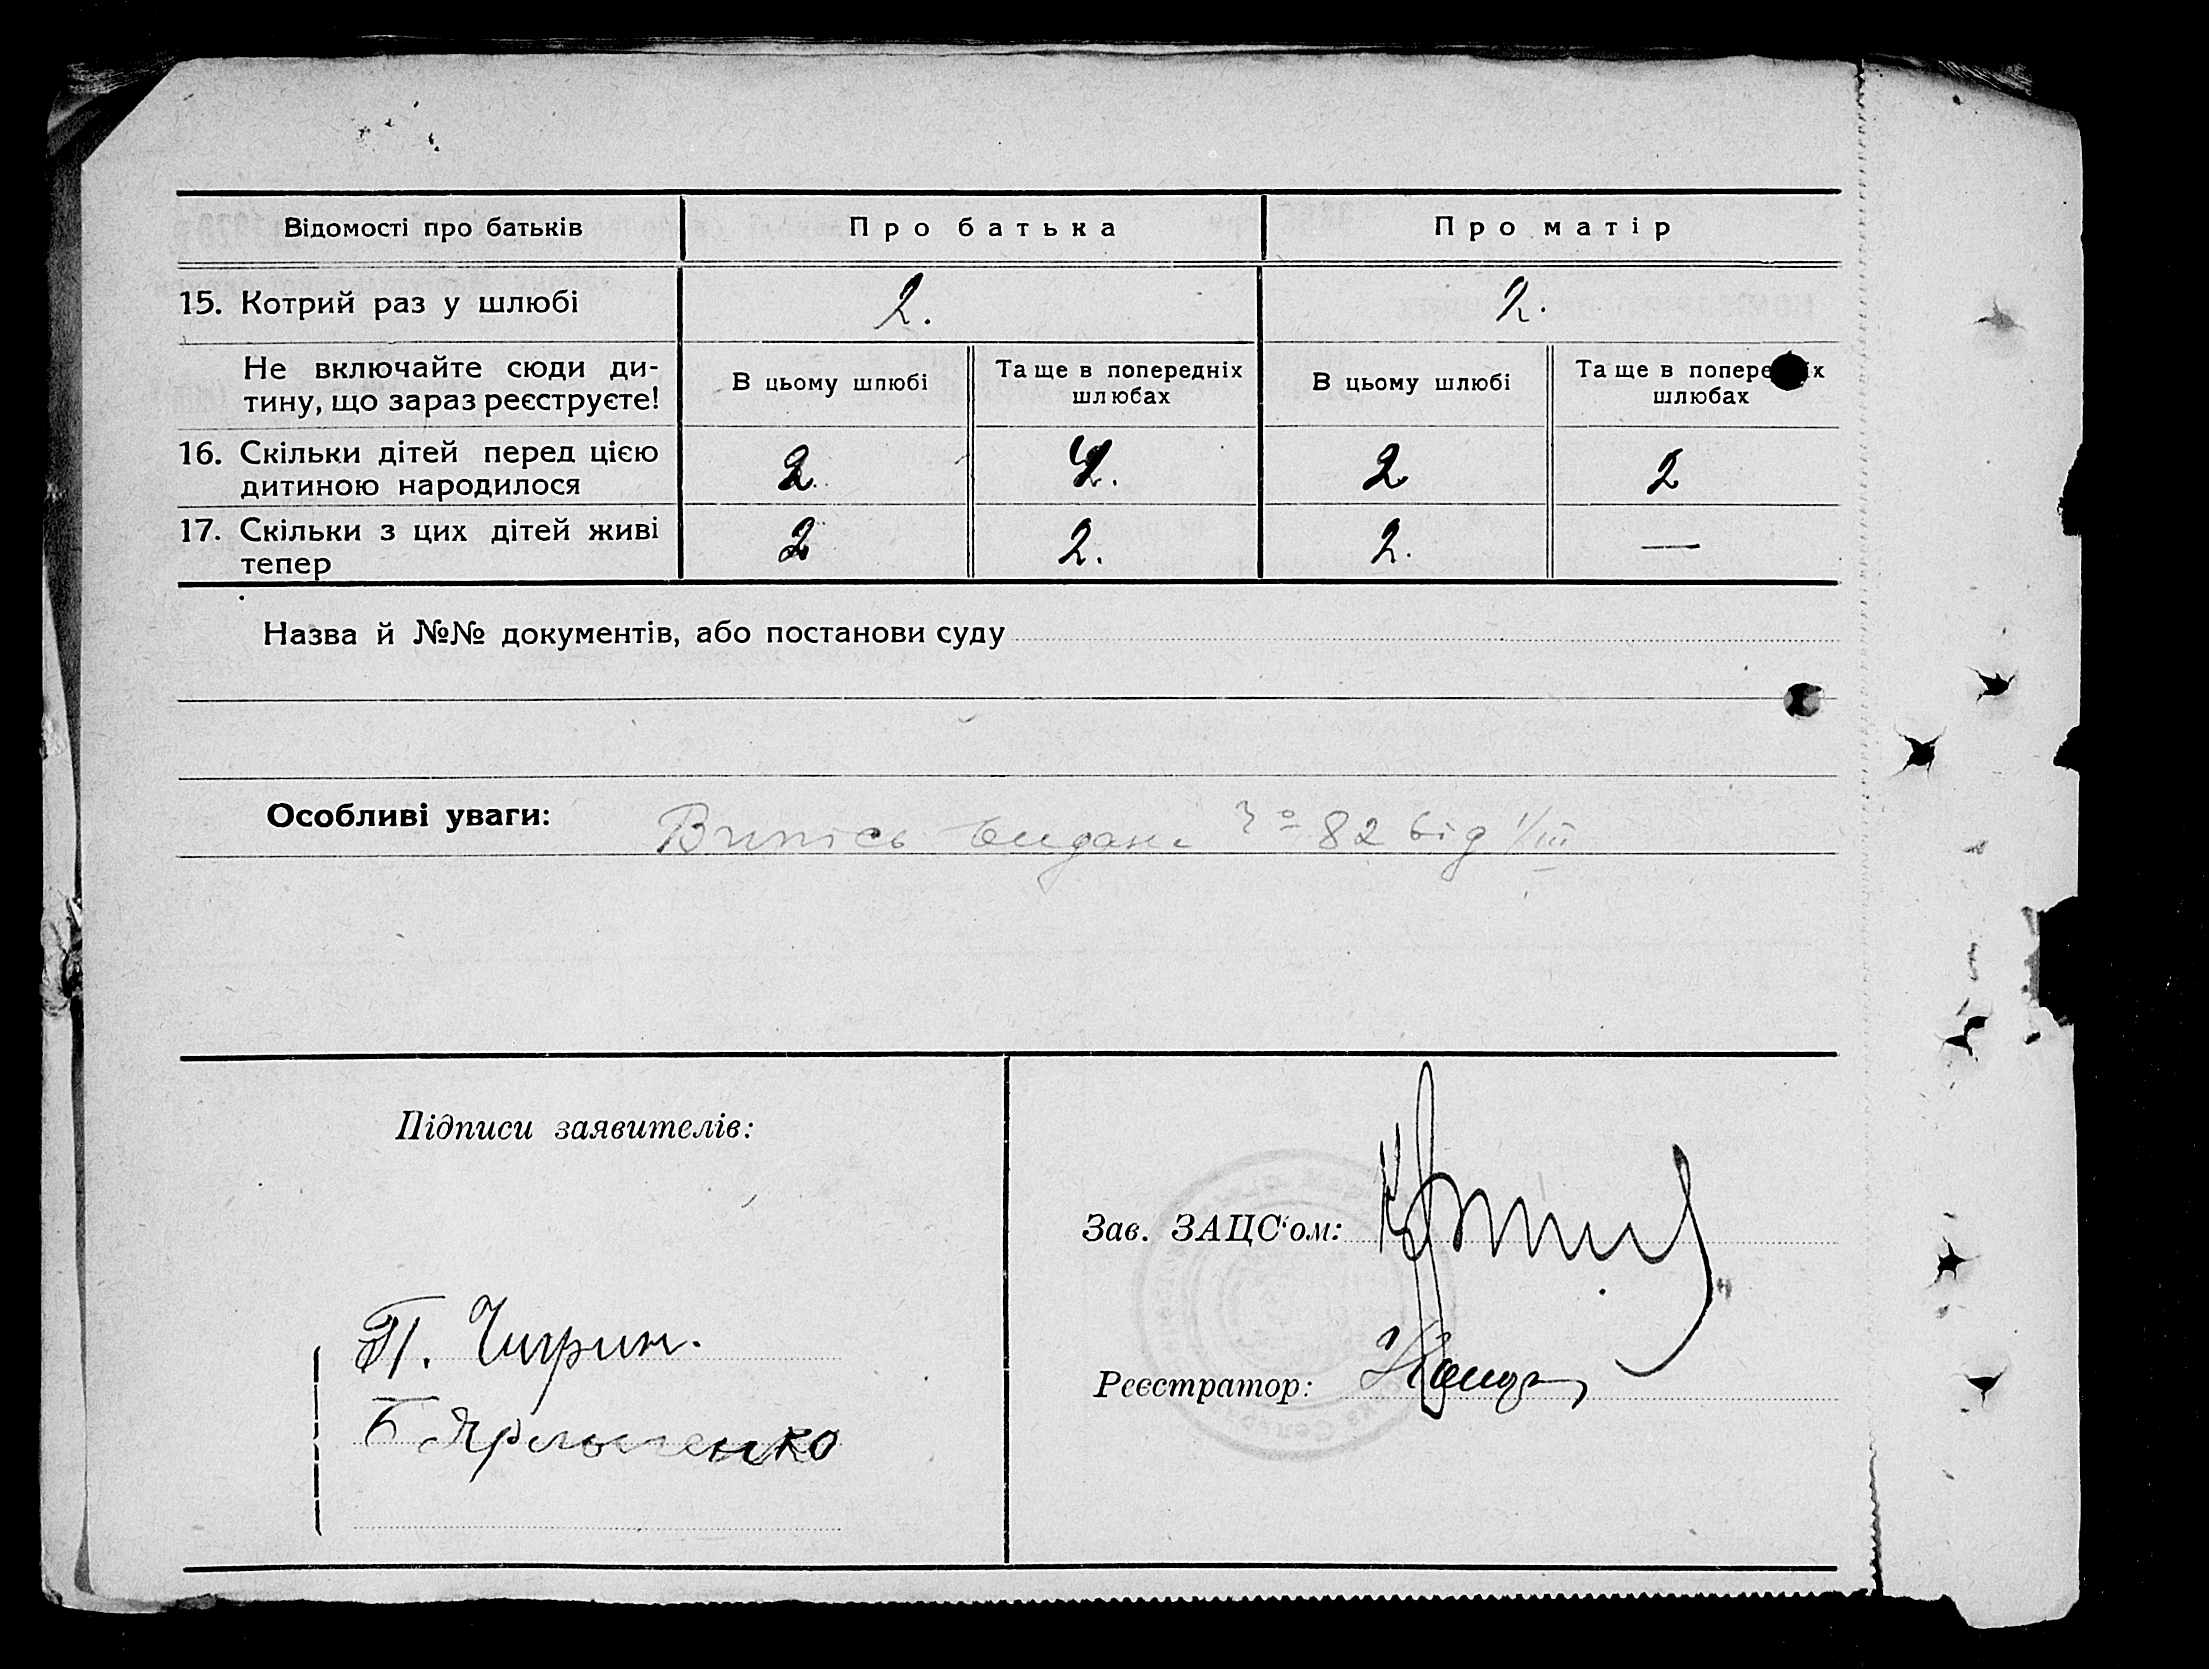 Відомості про батьків Про батька Про матір
15. Котрий раз у шлюбі 2. 2.
Не включайте сюди ди-
тину, що зараз реєструєте!
В цьому шлюбі Та ще в попередніх шлюбах В цьому шлюбі Та ще в попередніх шлюбах
16. Скільки дітей перед цією
дитиною народилося 2 4. 2 2
17. Скільки з цих дітей живі
тепер 2 2. 2. —
Назва й №№ документів, або постанови суду
Особливі уваги: Випісь видана № 82 від 1/III
Підписи заявителів:
Зав. ЗАЦС'ом:
П. Чигрин.
Реєстратор: